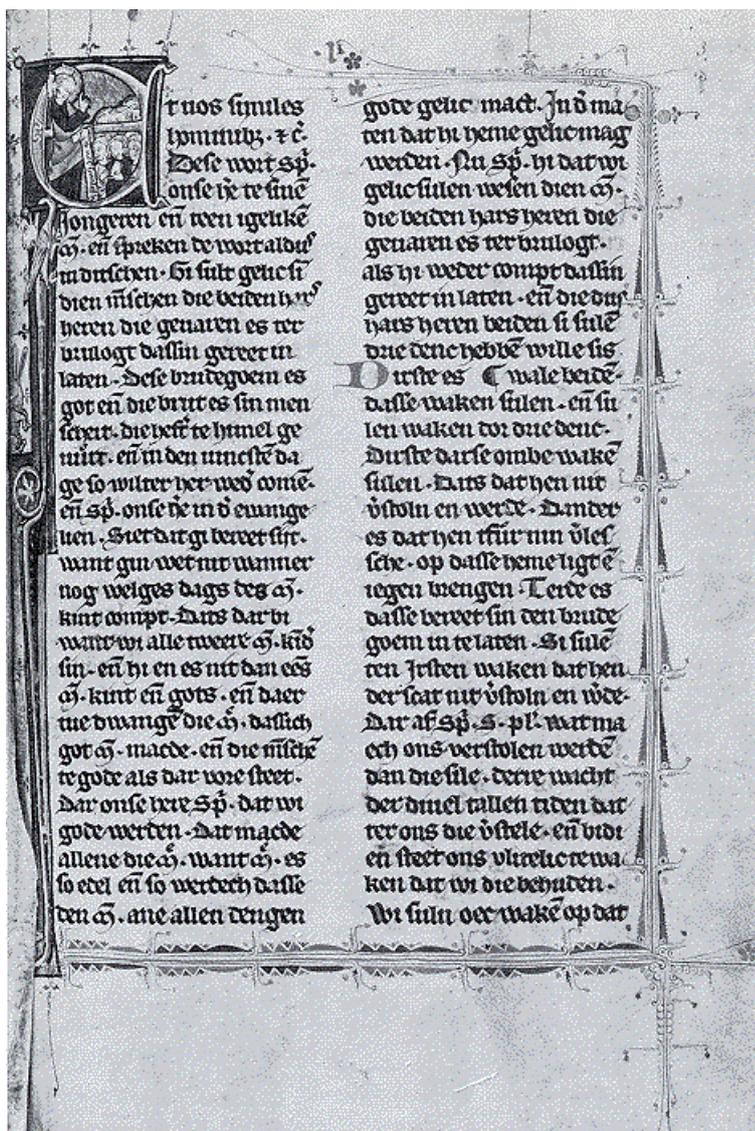 Et uos similes
hominibꝫ · ⁊ c̃.
Dese wort sp̃.
onse h̃e te sinẽ
Jongeren eñ teen igelikẽ
m̃. eñ spreken de wort aldus
in ditschen · Gi sult gelic si
dien m̃schen die beiden hars
heren die geuaren es ter
brulogt dassin gereet in
laten · Dese brudegoem es
got eñ die brut es sin men
scheit · die heft te himel ge
eñ in den
ge so wilter her wed̾ comẽ.
eñ sp̃. onse h̃e in d̾ ewange
lien · Siet dat gi bereet sijt.
want gin wet nit wanner
nog welges dags des m̃.
kint compt · Dats dar bi
want wi alle tweere m̃. kid̾
sin · eñ hi en es nit dan eẽs
m̃. kint eñ gots · eñ daer
tue dwangẽ die m̃. dassich
got m̃. macde · eñ die m̃schẽ
te gode als dar vore steet ·
Dar onse here Sp̃. dat wi
gode werden · Dat macde
allene die m̃. want m̃. es
so edel eñ so werdech dasse
den m̃. ane allen dengen
gode gelic mact. In d̾ ma
ten dat hi heme gelic mag
werden · Nu Sp̃. hi dat wi
gelic sulen wesen dien m̃.
die beiden hars heren die
geuaren es ter brulogt ·
als hi weder compt dassin
gereet in laten · eñ die dus
hars heren beiden si sulẽ
drie denc hebbẽ wille sis
Dirste es wale beidẽ.
dasse waken sulen · eñ su
len waken tor drie denc.
Dirste darse ombe wakẽ
sulen · Dats dat hen nit
v̾stoln en werde · Dander
es dat hen tfur nin v̾les
sche · op dasse heme ligt ẽ
iegen brengen · Terde es
dasse bereet sin den brude
goem in te laten · Si sulẽ
ten Irsten waken dat hen
der scat nit v̾stoln en w̾de.
Dar af Sp̃. S. pl̾. wat ma
ech ons verstolen werdẽ
dan die sile · derre wacht
der duuel tallen tiden dat
ter ons die v̾stele · eñ bidi
eñ steet ons vlitelic te wa
ken dat wi die behuden ·
Wi suln oec wakẽ op dat